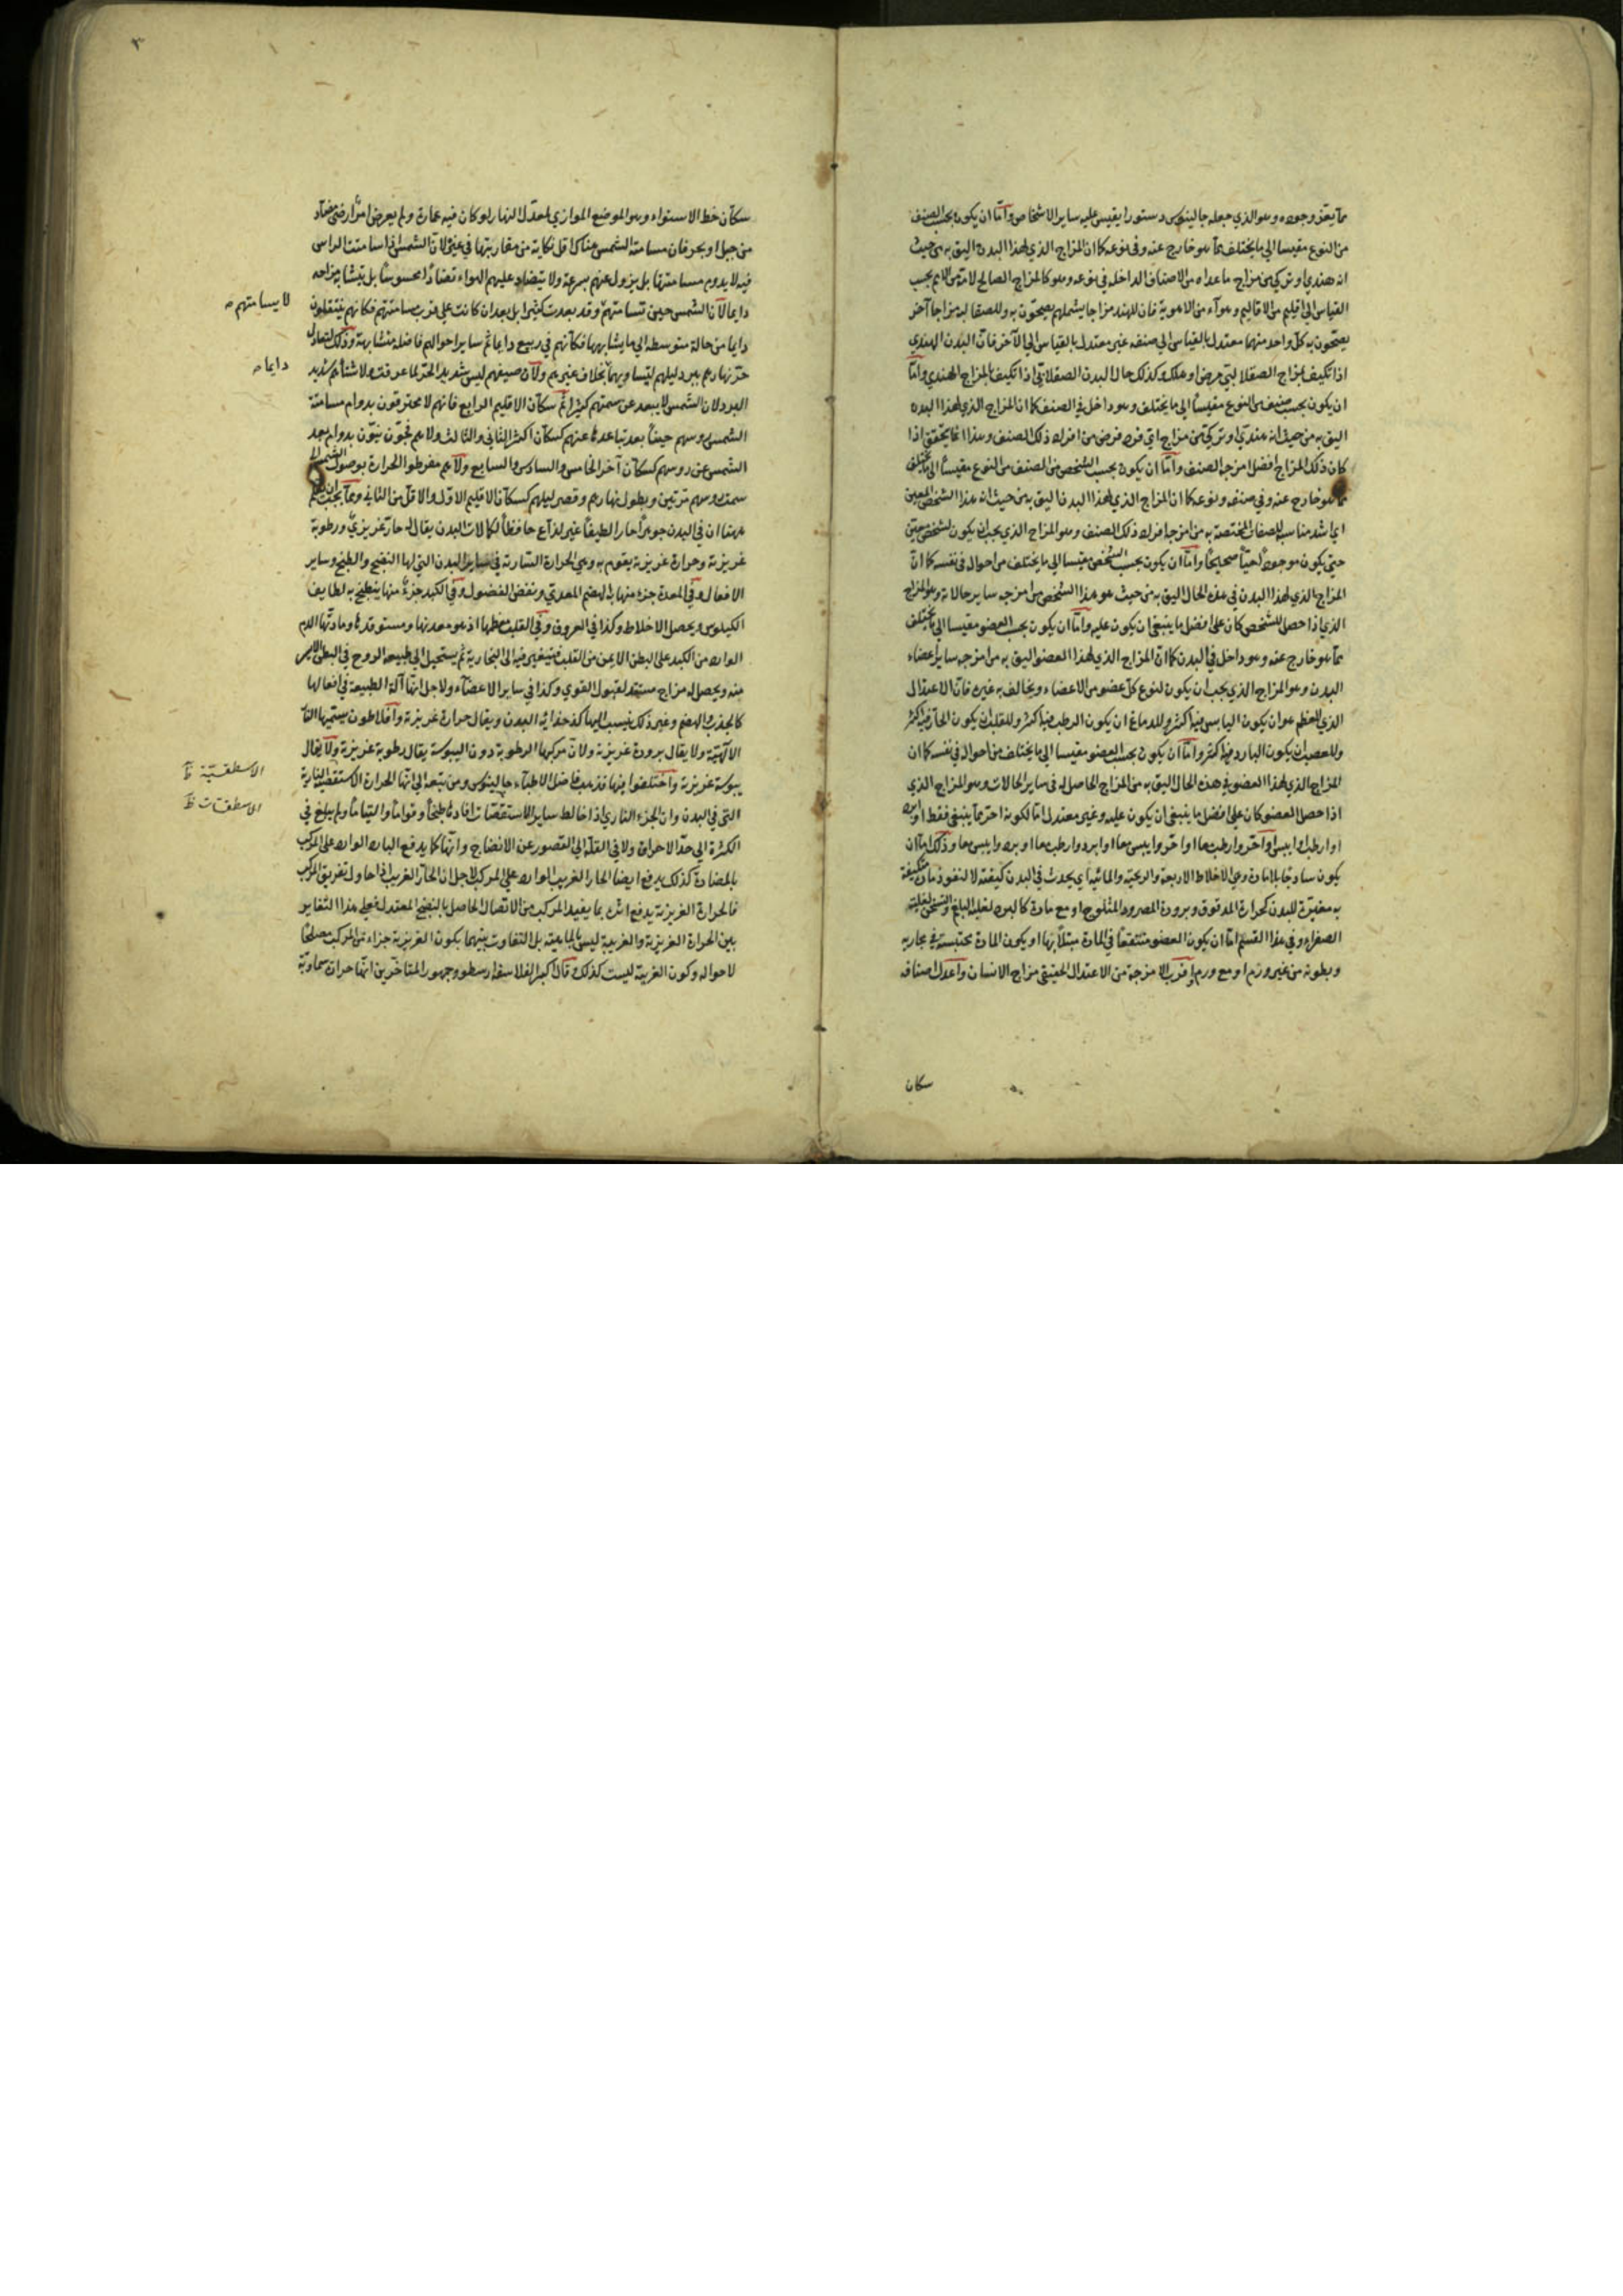 مما يعز وجوده وهو الذي جعله جالينوس دستورا يقيس عليه ساير الاشخاص واما ان يكون بحسب الصنف
من النوع مقيسا الى ما يختلف مما هو خارج عنه وفي نوعه كما ان المزاج الذي لهذا البدن اليق به من حيث
انه هندي او تركي من مزاج ما عداه من الاصناف الداخله في نوعه وهو كالمزاج الصالح لامة من الامم بحسب
القياس الى اقليم من الاقاليم وهواء من الاهوية فان للهند مزاجا يشملهم يصحون به وللصقالبه مزاجا آخر
يصحون به كل واحد منهما معتدل بالقياس الى صنفه غير معتدل بالقياس الى الآخر فان البدن الهندي
اذا تكيف بمزاج الصقلابي مرض او هلك وكذلك حال البدن الصقلابي اذا تكيف بالمزاج الهندي واما
ان يكون بحسب صنف من النوع مقيسا الى ما يختلف وهو داخل في الصنف كما ان المزاج الذي لهذا البدن
اليق به من حيث انه هندي او تركي من مزاج اي فرد فرض من افراد ذلك الصنف وهذا انما يتحقق اذا
كان ذلك المزاج افضل امزجة الصنف واما ان يكون بحسب الشخص من الصنف من النوع مقيسا الى ما يختلف
مما هو خارج عنه وفي صنفه ونوعه كما ان المزاج الذي لهذا البدن اليق به من حيث انه هذا الشخص المعين
اي اشد مناسبة للصفات المختصة به من امزجة افراد ذلك الصنف وهو المزاج الذي يجب ان يكون لشخص معين
حتى يكون موجودا حيا صحيحا واما ان يكون بحسب الشخص مقيسا الى ما يختلف من احواله في نفسه كما ان
المزاج الذي لهذا البدن في هذه الحال اليق به من حيث هو هذا الشخص من امزجه ساير حالاته وهو المزاج
الذي اذا حصل للشخص كان على افضل ما ينبغي ان يكون عليه واما ان يكون بحسب العضو مقيسا الى ما يختلف
مما هو خارج عنه وهو داخل في البدن كما ان المزاج الذي لهذا العضو اليق به من امزجه ساير اعضاء
البدن وهو المزاج الذي يجب ان يكون لنوع كل عضو من الاعضاء ويخالف به غيره فان الاعتدال
الذي للعظم هو ان يكون اليابس فيه اكثر وللدماغ ان يكون الرطب فيه اكثر وللقلب ان يكون الحار فيه اكثر
وللعصب ان يكون البارد فيه اكثر واما ان يكون بحسب العضو مقيسا الى ما يختلف من احواله في نفسه كما ان
المزاج الذي لهذا العضو في هذه الحال اليق به من المزاج الحاصل له في ساير الحالات وهو المزاج الذي
اذا حصل العضو كان على افضل ما ينبغي ان يكون عليه وغير معتدل اما لكونه احر مما ينبغي فقط او ابرد
او ارطب او ايبس او احر وارطب معا او احر وايبس معا او ابرد وارطب معا او ابرد وايبس معا وذلك اما ان
يكون ساذجا بلا مادة وهي الاخلاط الاربعة والريحية والمائية اي يحدث في البدن كيفية لا لنفوذ مادة متكيفة
به مغيرة للبدن كحرارة المدقوق وبرودة المصرود المثلوج او مع مادة كالبرد لغلبة البلغم والتسخن لغلبة
الصفراء وفي هذا القسم اما ان يكون العضو منتقعا في المادة مبتلا بها او يكون المادة محتبسة في مجاريه
وبطونه من غير ورم او مع ورم واقرب الامزجة من الاعتدال الحقيقي مزاج الانسان واعدل اصنافه
سكان
٣
سكان خط الاستواء وهو الموضع الموازي لمعدل النهار لو كان فيه عمارة ولم يعرض امر ارضي مضاد
من جبل او بحر فان مسامتة الشمس هناك اقل نكاية من مقاربتها في غيره لان الشمس اذا سامتت الراس
فيه لا يدوم مسامتتها بل يزول عنهم بسرعة ولا يتضاد عليهم الهواء تضادا محسوسا بل يتشابه مزاجه
دايما لان الشمس حين تسامتهم وقد بعدت كثيرا بل بعد ان كانت على قرب مسامتتهم فكانهم ينتقلون
دايما من حالة متوسطه الى ما يشابهها فكأنهم في ربيع دايما ثم ساير احوالهم فاضله متشابهة وذلك لتعادل
حر نهارهم ببرد ليلهم لتساويهما بخلاف غيرهم ولان صيفهم ليس شديد الحر لما عرفت ولا شتاءهم شديد
البرد لان الشمس لا يبعد عن سمتهم كثيرا ثم سكان الاقليم الرابع فانهم لا محترقون بدوام مسامتة
الشمس روسهم حينا بعد تباعدها عنهم كسكان اكثر الثاني والثالث ولا هم فجون نيون بدوام بعد
الشمس عن روسهم كسكان آخر الخامس والسادس والسابع ولا هم مفرطوا الحرارة بوصول الشمس الى
سمت روسهم مرتين وبطول نهارهم وقصر ليلهم كسكان الاقليم الاول والاقل من الثاني ومما يجب ان يعلم
ههنا ان في البدن جوهرا حارا لطيفا غير لذاع حافظا لكمالات البدن يقال له حار غريزي ورطوبة
غريزية وحرارة غريزية يقوم به وهي الحرارة السارية في ساير البدن التي لها النضج والطبخ وساير
الافعال وفي المعدة جزء منها به الهضم المعدي ونفض الفضول وفي الكبد جزء منها ينطبخ به لطايف
الكيلوس ويحصل الاخلاط وكذا في العروق وفي القلب معظمها اذ هو معدنها ومستوقدها ومادتها الدم
الوارد من الكبد على البطن الايمن من القلب فيتغير فيه الى البخارية ثم يستحيل الى طبيعة الروح في البطن الايسر
منه ويحصل له مزاج مستعد لقبول القوى وكذا في ساير الاعضاء ولاجل انها آلة الطبيعة في افعالها
كالجذب والهضم وغير ذلك ينسب اليها كدخدائية البدن ويقال حرارة غريزية وافلاطون يسميها النار
الالهية ولا يقال برودة غريزية ولان مركبها الرطوبة دون اليبوسة يقال رطوبة غريزية ولا يقال
يبوسة غريزية واختلفوا فيها فذهب فاضل الاطباء جالينوس ومن تبعه الى انها الحرارة الاستقصية النارية
التي في البدن وان الجزء الناري اذا خالط ساير الاستقصات افادها طبخا وقواما والتياما ولم يبلغ في
الكثرة الى حد الاحراق ولا في القلة الى القصور عن الانضاج وانها كما يدفع البارد الوارد على المركب
بالمضادة كذلك يدفع ايضا الحار الغريب الوارد على المركب لاجل ان الحار الغريب اذا حاول تفريق المركب
فالحرارة الغريزية يدفع اثره بما يفيد المركب من الاتصال الحاصل بالنضج المعتدل فعلى هذا التغاير
بين الحرارة الغريزية والغريبة ليس بالماهية بل التفاوت بينهما بكون الغريزية جزاء من المركب مصلحا
لاحواله وكون الغريبة ليست كذلك قال كبير الفلاسفة ارسطو وجمهور المتاخرين انها حرارة سماوية
لا يسامتهم
دايما
الاسطقسية ظ
الاسطقسات ظ